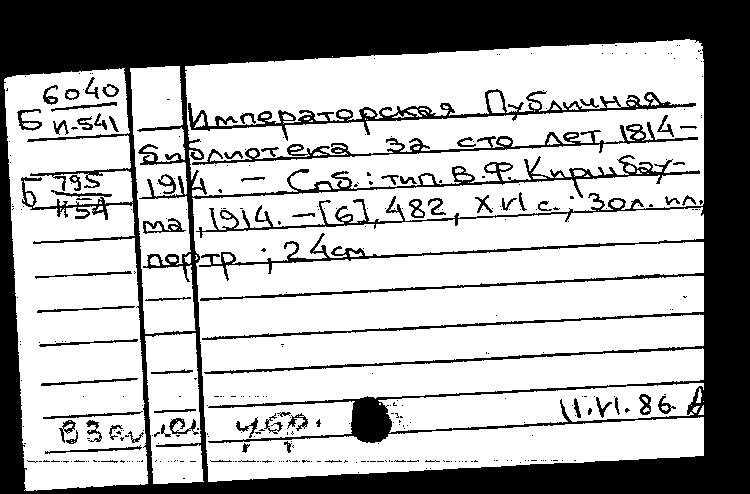 Б 6040
И-541
Императорская Публичная
библиотека за сто лет, 1814-
Б 795
И54
1914. - Спб.: тип. В.Ф. Киршбау-
ма, 1914. - [6], 482, XVI с.; 30 л. ил.,
портр.; 24 см.
взамен убр.
11.VI.86